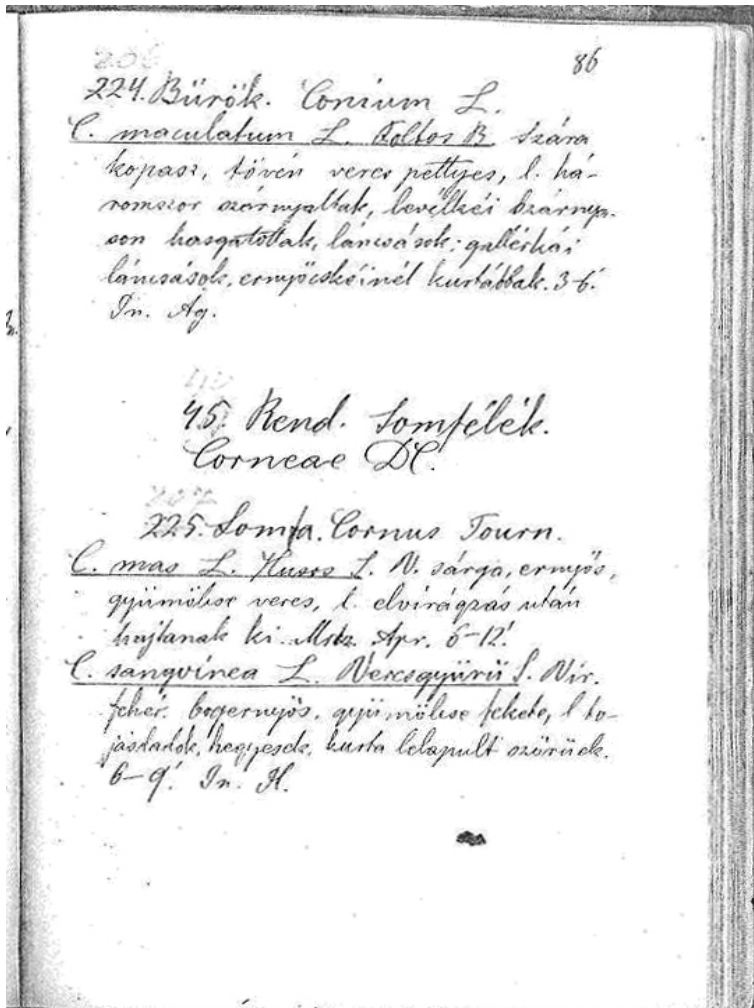 86
224. Bürök. Conium L.
C. maculatum L. Foltos B. Szára
kopasz, tövén veres pettyes, l. há-
romszor szárnyaltak, levélkéi szárnya-
son hasgatottak, láncsások; gallérkái
láncsások, ernyőcskéinél kurtábbak. 3-6.'
Jn. Ag.
45. Rend. Somfélék.
Corneae DC.
225. Somfa. Cornus Tourn.
C. mas L. Husos S. V. sárga, ernyős,
gyümölcse veres, l. elvirágzás után
hajtanak ki. Mrtz. Apr. 6-12.'
C. sangvinea L. Veresgyürü S. Vir.
fehér. bogernyős, gyümölcse fekete, l to-
jásdadok, hegyesek, kurta lelapult szörüek.
6-9.' Jn. Jl.